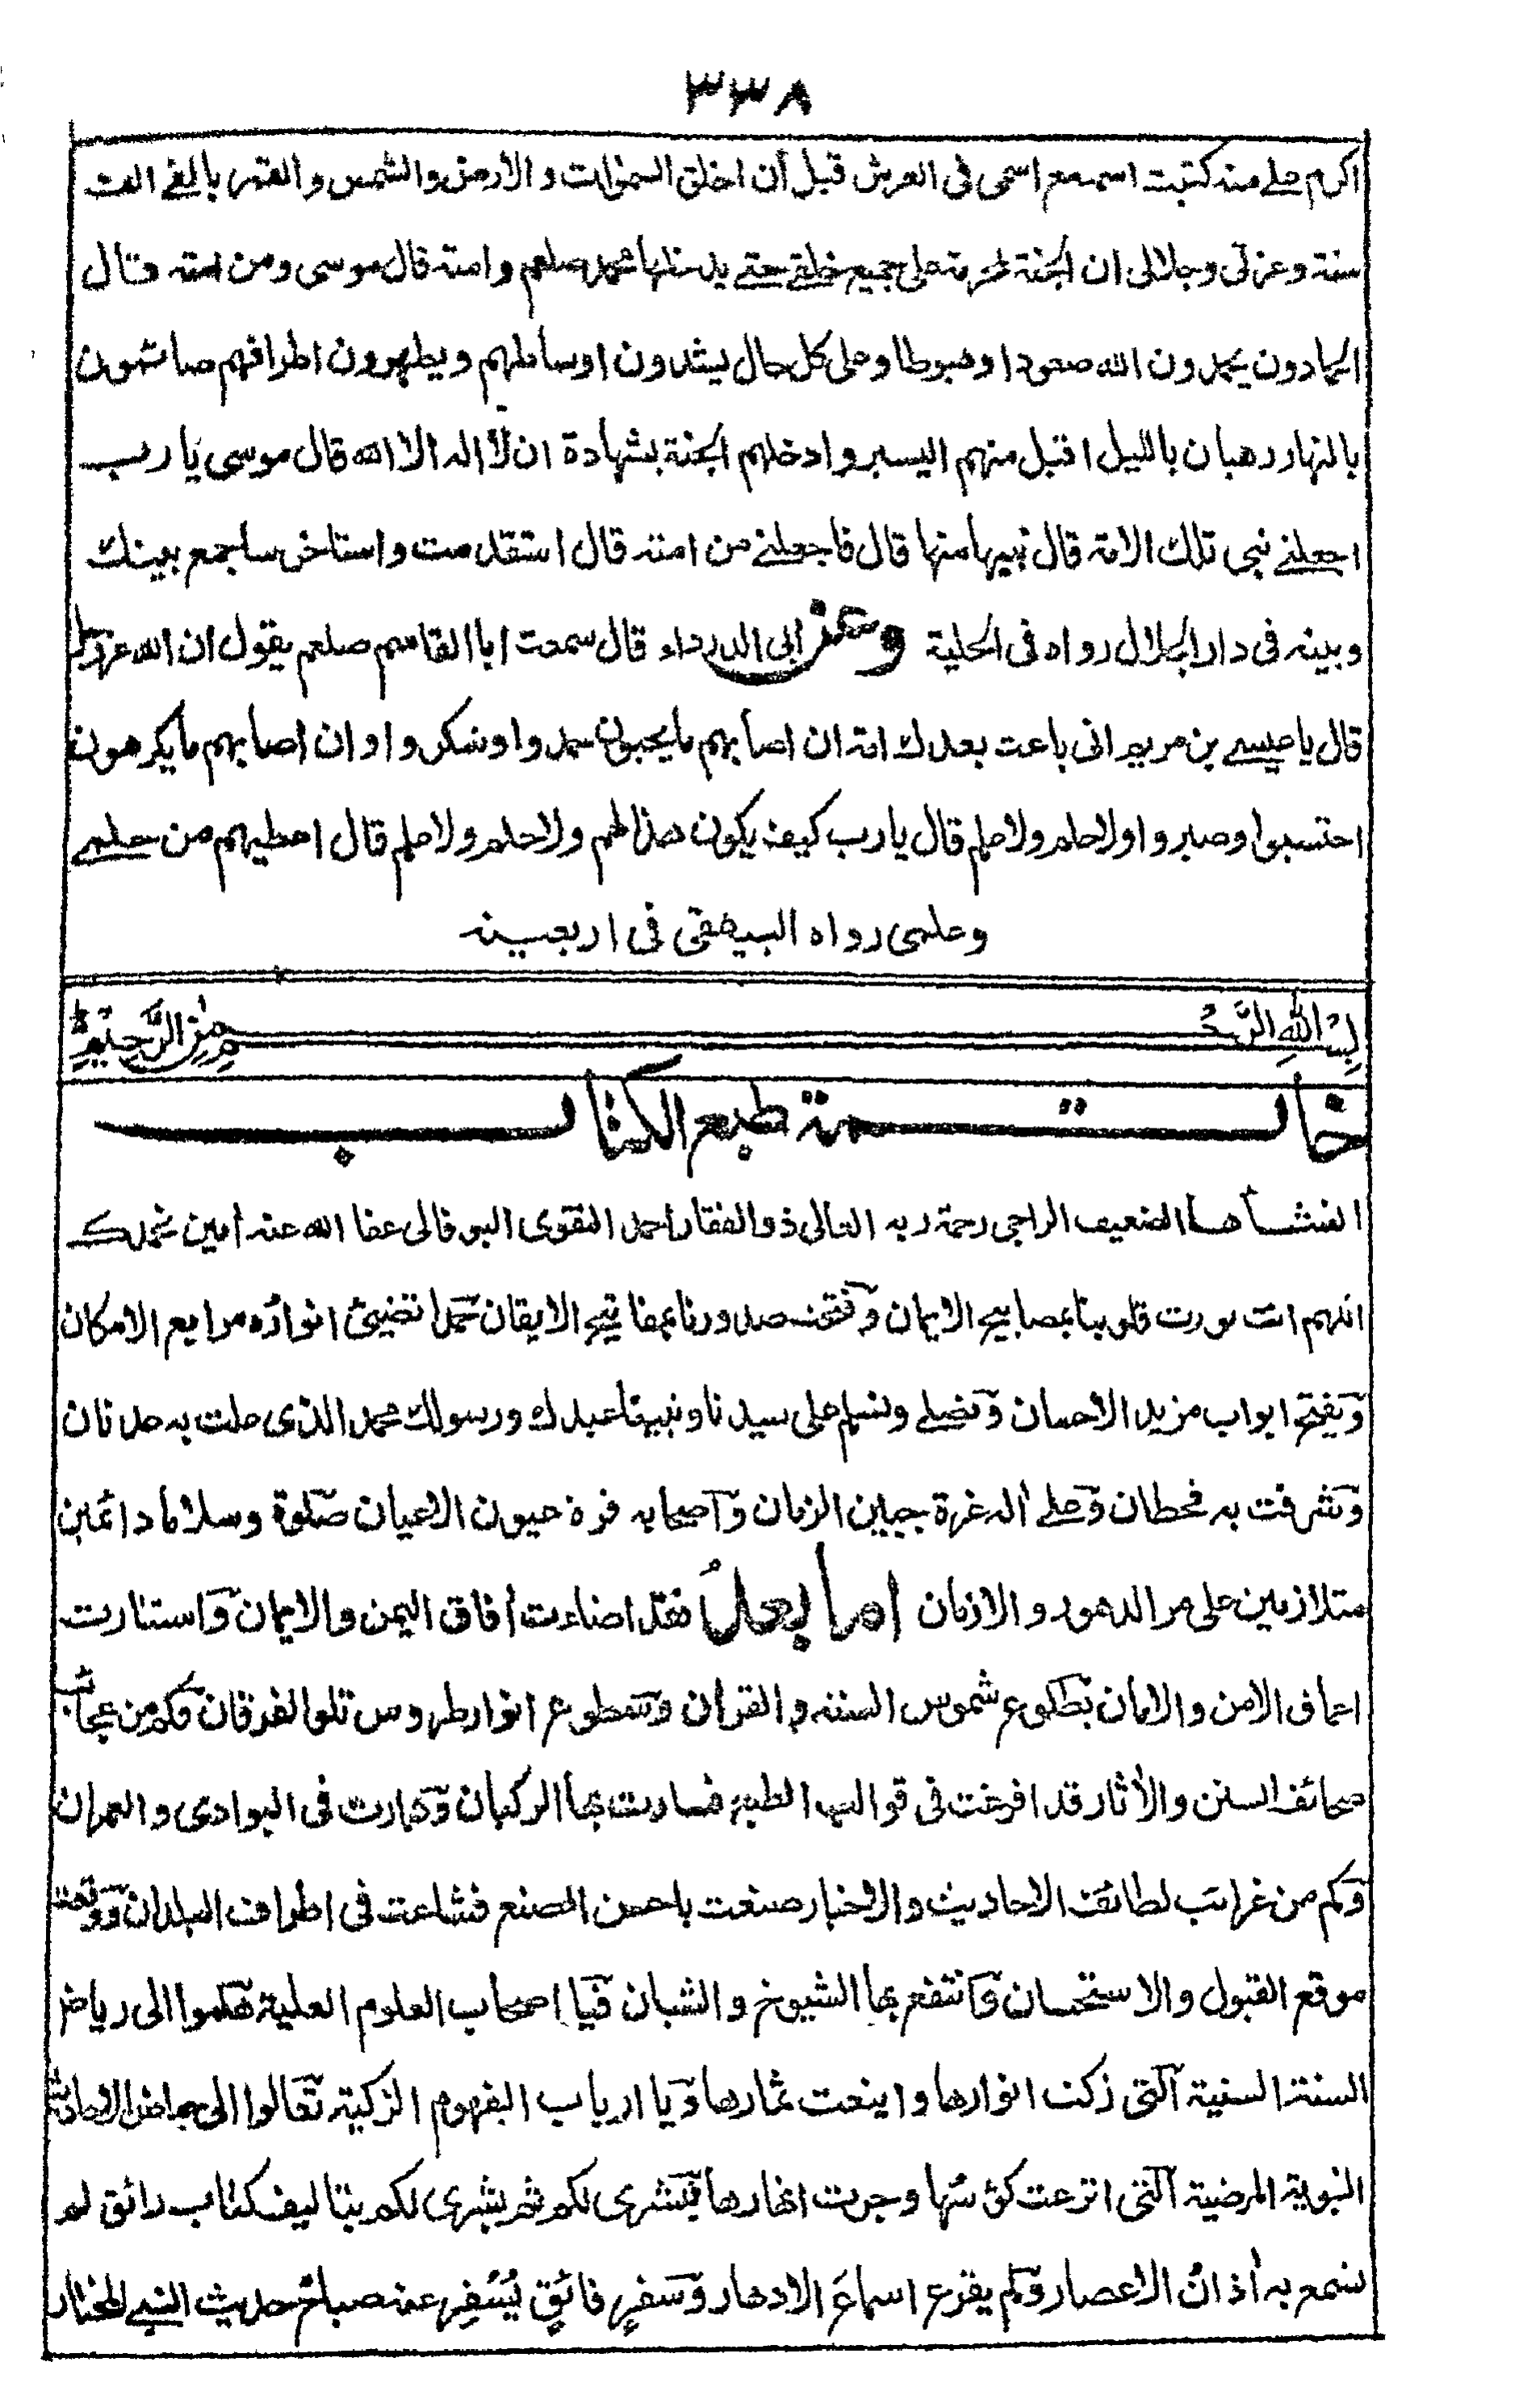 ٣٣٨
اكرم علے منه كتبت اسمه مع اسمي في العرش قبل أن اخلق السموات و الارض والشمس والقمر بالفے الف
سنة وعزتي وجلالي ان الجنة لمحرمة على جميع خلقے حتے يدخلها محمد صلعم وامته قال موسى ومن امته قال
الحمادون يحمدون الله صعودا وهبوطا وعلى كل حال يشدون اوساطهم ويطهرون اطرافهم صائمون
بالنهار رهبان بالليل اقبل منهم اليسير وادخلهم الجنة بشهادة ان لا اله الا الله قال موسى يا رب
اجعلنے نبي تلك الامة قال نبيها منها قال فاجعلنے من امته قال استقدمت واستاخر ساجمع بينك
وبينه في دار الجلال رواه في الحلية وعن ابي الدرداء قال سمعت ابا القاسم صلعم يقول ان الله عزوجل
قال يا عيسے بن مريم اني باعث بعدك امة ان اصابهم ما يحبون حمدوا وشكروا وان اصابهم ما يكرهون
احتسبوا وصبروا ولا حلم ولا علم قال يارب كيف يكون هذا لهم ولا حلم ولا علم قال اعطيهم من حلمے
وعلمي رواه البيهقي في اربعينه
بسم الله الرحمن الرحيم
خاتمة طبع الكتاب
انشأها الضعيف الراجي رحمة ربه العالي ذو الفقار احمد النقوى البوفالى عفا الله عنه امين نحمدك
اللهم انت نورت قلوبنا بمصابيح الايمان وفتحت صدورنا بمفاتيح الايقان حمدا تضيئ انواره مرابع الامكان
ويفتح ابواب مزيد الاحسان ونصلے ونسلم على سيدنا ونبينا عبدك ورسولك محمد الذى علت به عدنان
وتشرفت به قحطان وعلے اله غرة جبين الزمان واصحابه قرة عيون الاعيان صلوة وسلاما دائمين
متلازمين على مر الدهور و الازمان اما بعد فقد اضاءت أفاق اليمن والايمان واستنارت
اعماق الامن والامان بطلوع شموس السنة والقرأن وسطوع انوار طروس تلو الفرقان فكم من عجائب
صحائف السنن والأثار قد افرغت في قوالب الطبع فسارت بها الركبان وطارت في البوادى والعمران
وكم من غرائب لطائف الاحاديث والاخبار صنعت باحسن الصنع فشاعت في اطراف البلدان ووقعت
موقع القبول والاستحسان وانتفع بها الشيوخ والشبان فيا اصحاب العلوم العلية هلموا الى رياض
السنة السنية التي زكت انوارها واينعت ثمارها ويا ارباب الفهوم الزكية تعالوا الى حياض الاحاديث
النبوية المرضية التي اترعت كؤسها وجرت انهارها فبشرى لكم ثم بشرى لكم بتاليف كتاب رائق لم
تسمع به أذان الاعصار ولم يقرع اسماع الادهار وسفر فائق يسفر عنه صباح حديث النبے المختار